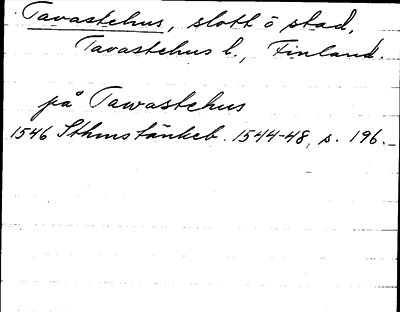 Tavastehus, slott o stad,
Tavastehus l., Finland.
på Tawastehus
1546 Sthms tänkeb. 1544-48, s. 196.